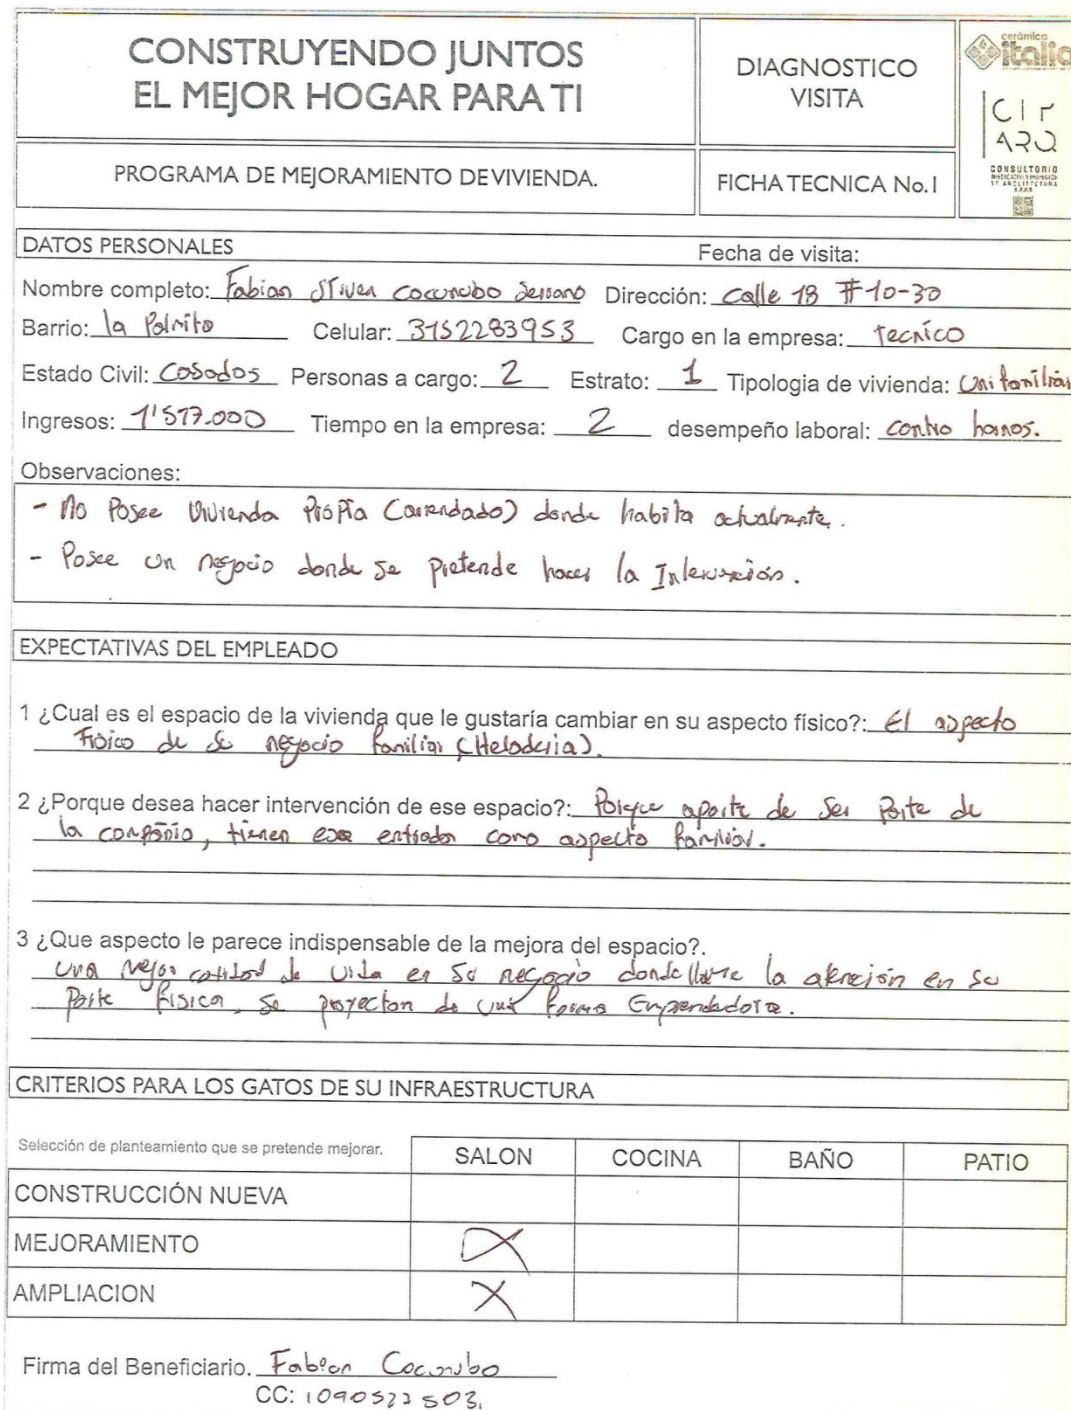 CONSTRUYENDO JUNTOS
EL MEJOR HOGAR PARA TI
DIAGNOSTICO
VISITA
cerámica
italia
CIP
ARQ
CONSULTORIO
PROGRAMA DE MEJORAMIENTO DE VIVIENDA.
FICHA TECNICA No.1
DATOS PERSONALES
Fecha de visita:
Nombre completo: Fabian Stiven Cocunubo Serrano Dirección: Calle 18 #10-30
Barrio: la Palmita Celular: 3152283953 Cargo en la empresa: Tecnico
Estado Civil: Casados Personas a cargo: 2 Estrato: 1 Tipologia de vivienda: Unifamiliar
Ingresos: 1'517.000 Tiempo en la empresa: 2 desempeño laboral: contro hornos.
Observaciones:
- No Posee Vivienda Propia (arrendado) donde habita actualmente.
- Posee un negocio donde se pretende hacer la Intervención.
EXPECTATIVAS DEL EMPLEADO
1 ¿Cual es el espacio de la vivienda que le gustaría cambiar en su aspecto físico?: El aspecto
Fisico de su negocio familiar (Heladeria).
2 ¿Porque desea hacer intervención de ese espacio?: Porque aparte de ser Parte de
la compañia, tienen esa entrada como aspecto familiar.
3 ¿Que aspecto le parece indispensable de la mejora del espacio?.
Una mejor calidad de vida en su negocio donde llame la atención en su
Parte fisica, se proyectan de una forma Emprendedora.
CRITERIOS PARA LOS GATOS DE SU INFRAESTRUCTURA
Selección de planteamiento que se pretende mejorar. SALON COCINA BAÑO PATIO
CONSTRUCCIÓN NUEVA
MEJORAMIENTO X
AMPLIACION X
Firma del Beneficiario. Fabian Cocunubo
CC: 1090522503.